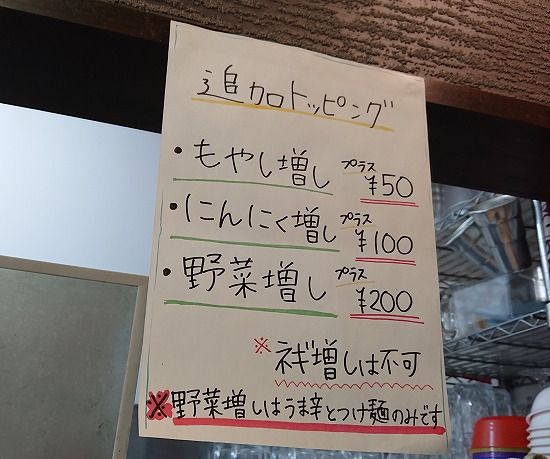 追加トッピング
・もやし増し プラス ¥50
・にんにく増し プラス ¥100
・野菜増し プラス ¥200
※ネギ増しは不可
※野菜増しはうま辛とつけ麺のみです